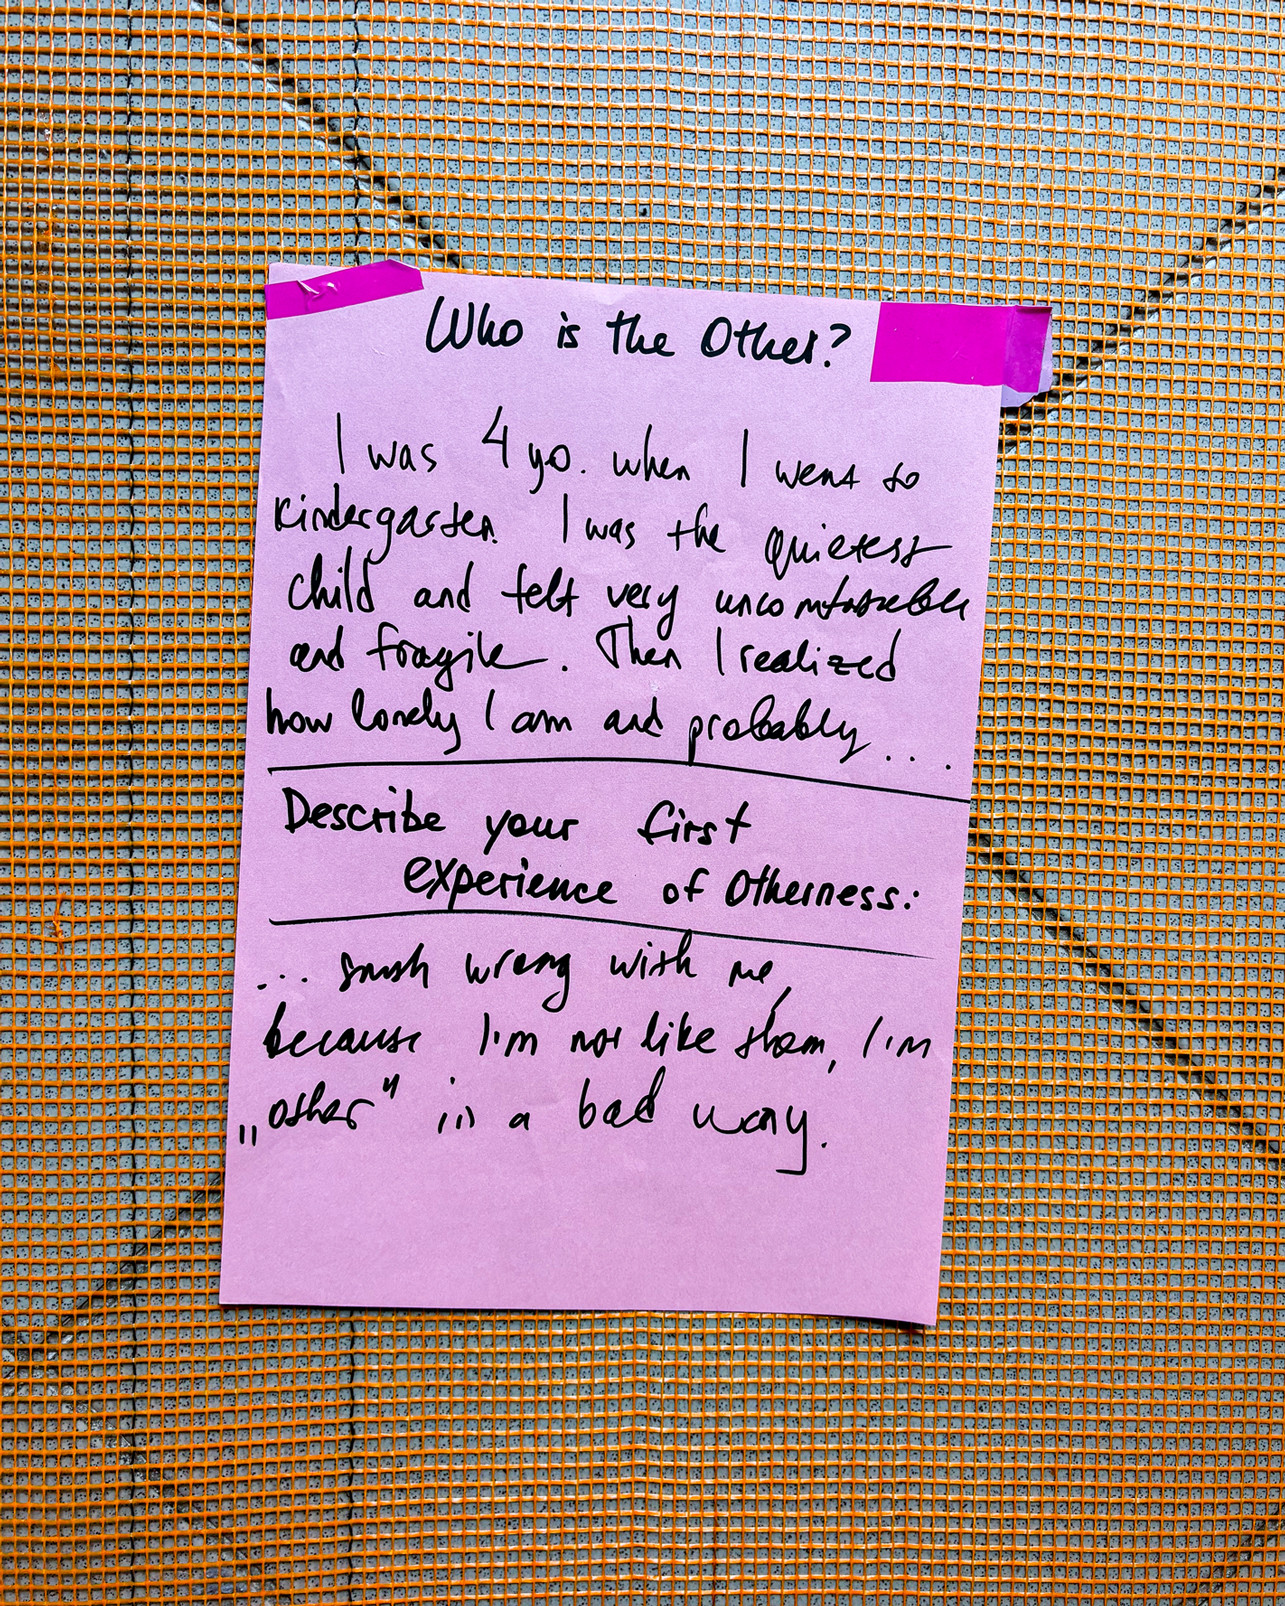 Who is the Other?
I was 4 yo. when I went to
kindergarten. I was the quietest
child and felt very uncomfortable
and fragile. Then I realized
how lonely I am and probably...
Describe your first
experience of Otherness:
... smth wrong with me,
because I'm not like them, I'm
„other" in a bad way.